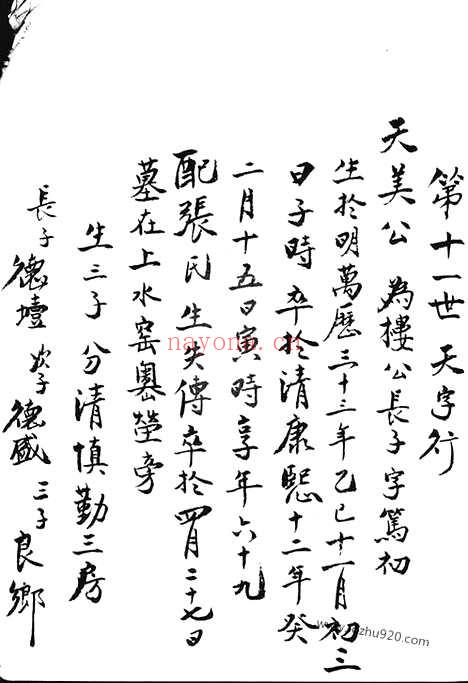 第十一世天字行
天美公 為樓公長子字篤初
生於明萬歷三十三年乙巳十一月初三
日子時卒於清康熙十二年癸
二月十五日寅時享年六十九
配張氏生失傳卒於四月二十七日
墓在上水窑塋旁
生三子分清慎勤三房
長子德壇 次子德盛 三子良鄉
nayona.cn